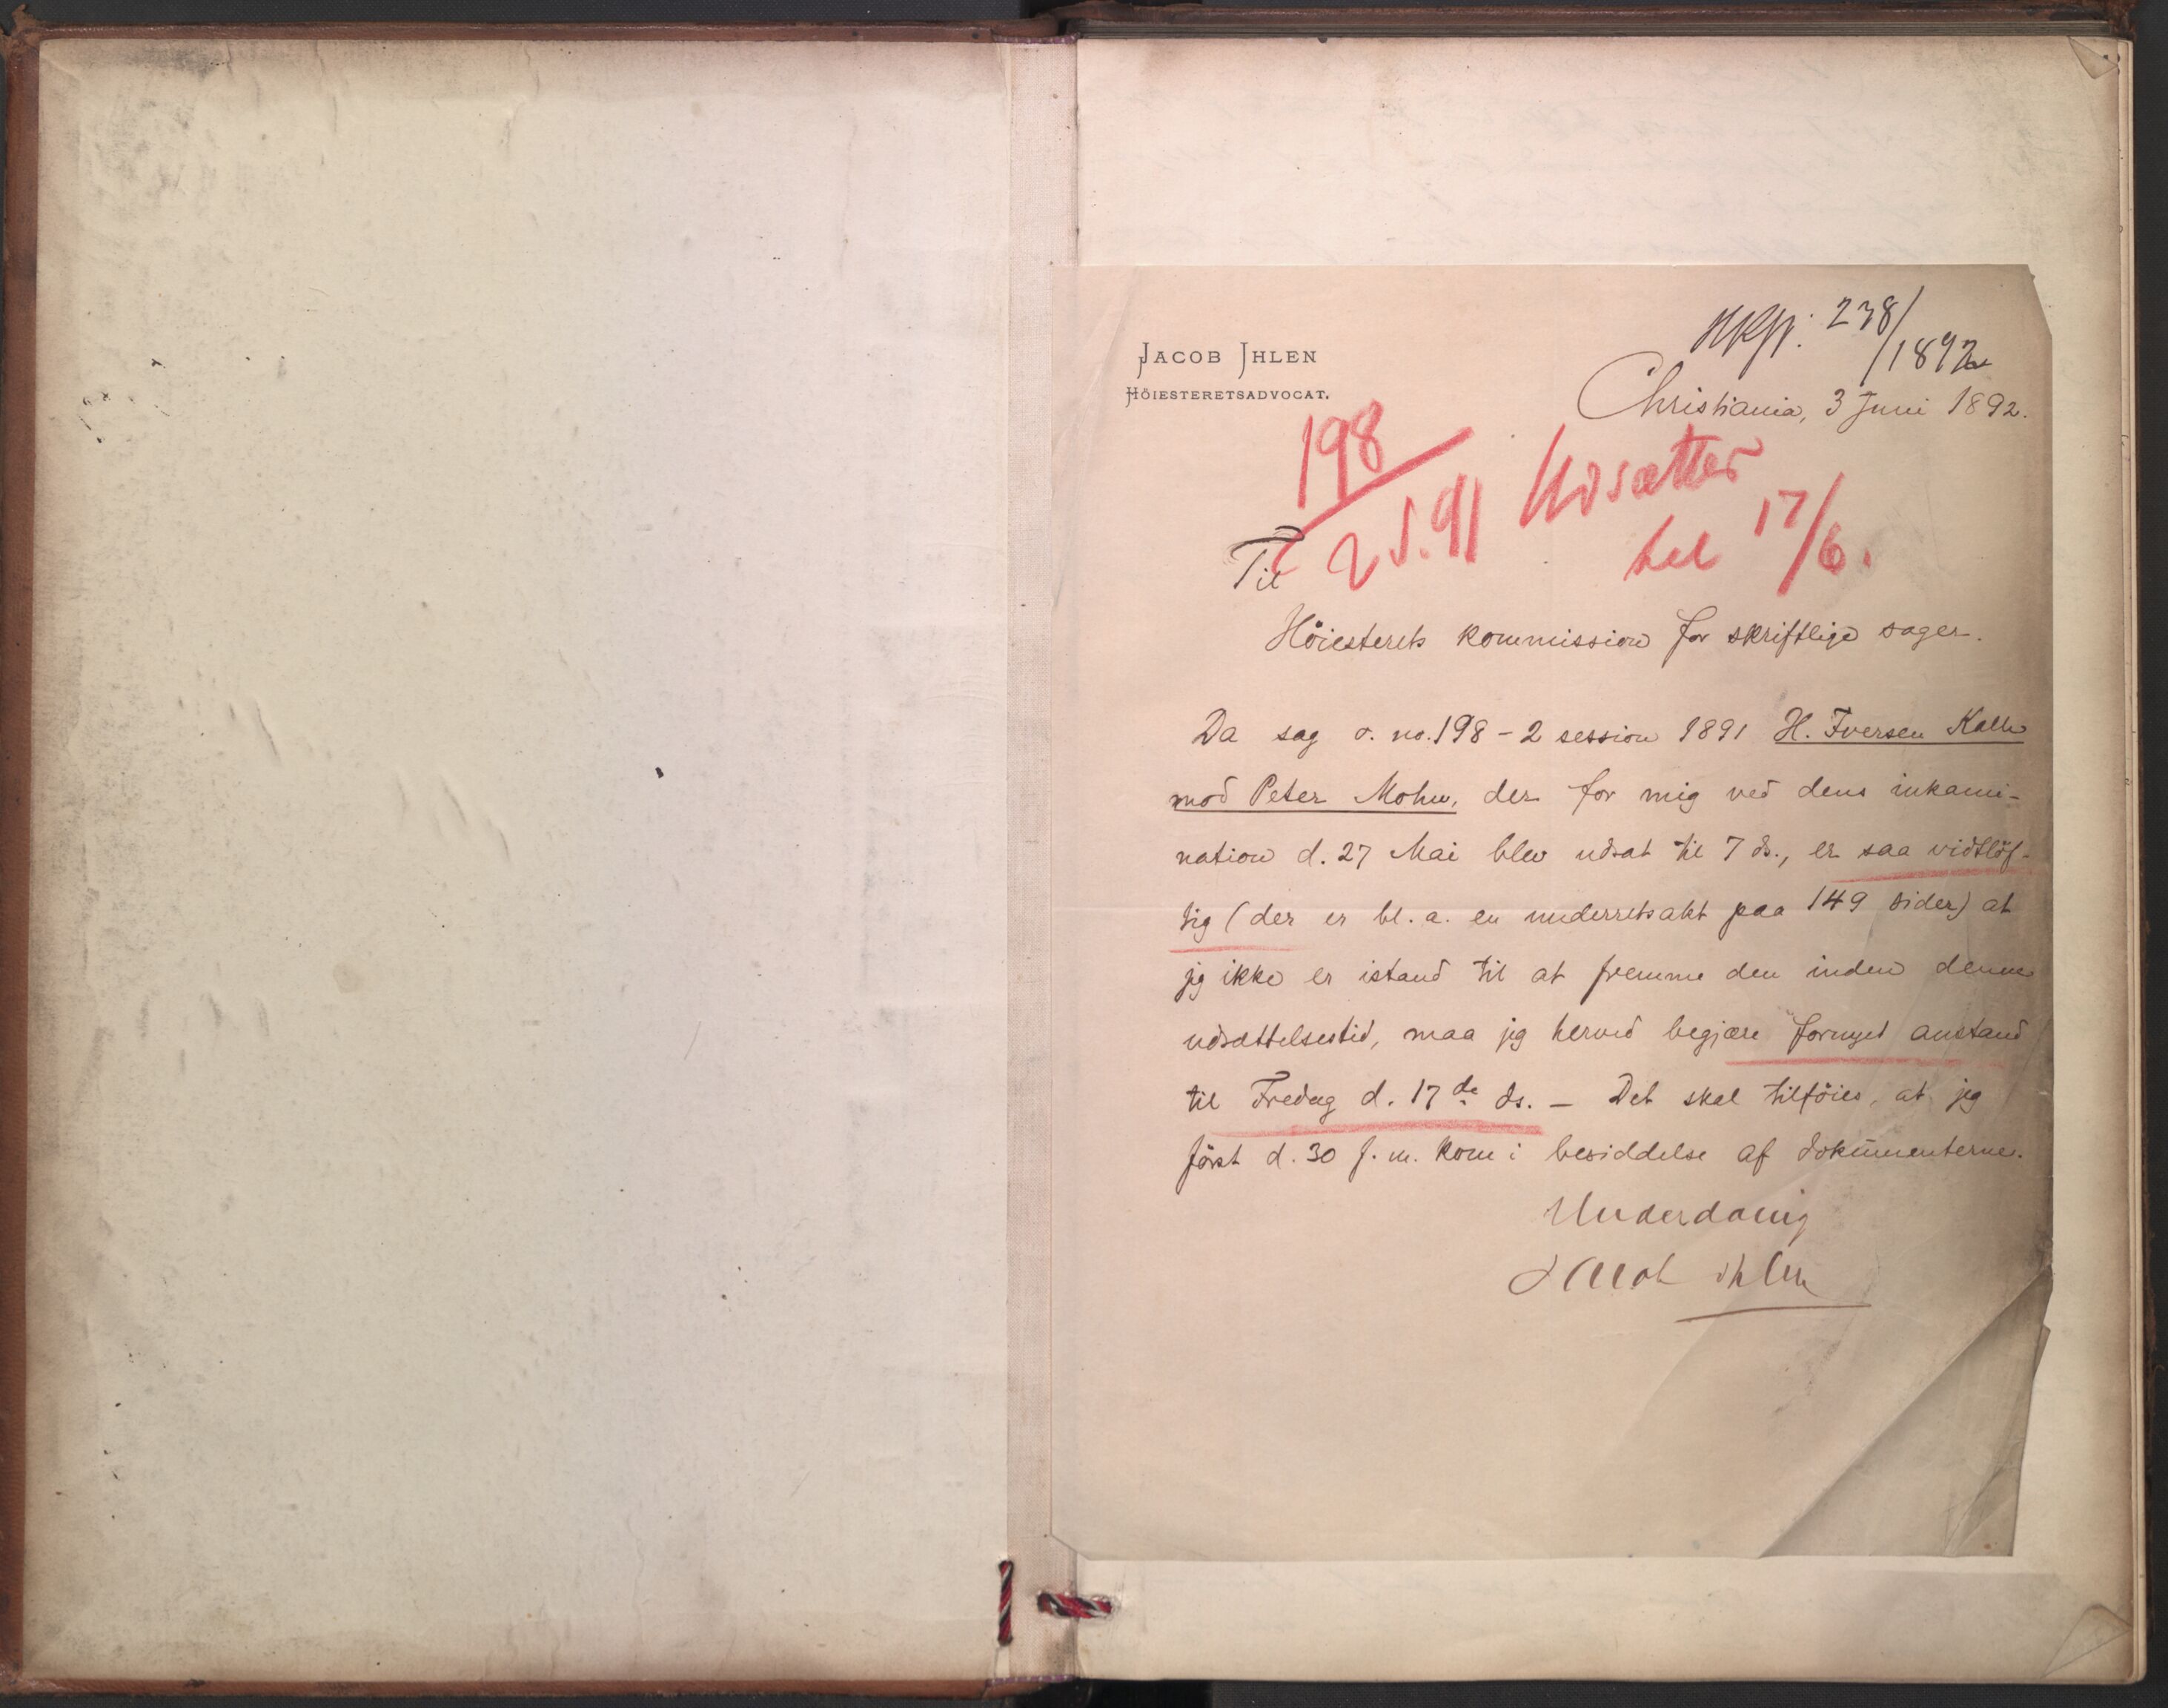 JACOB IHLEN
HÖIESTERETSADVOCAT.
238/
/1892
Christiania, 3 Juni 1892.
198
2 S. 91
Udsættes
til 17/6.
Til
Höiesterets kommission for skriftlige sager.
Da sag o. no. 198 - 2 session 1891 H. Iversen Kalle
mod Peter Mohn, der for mig ved dens inkami-
nation d. 27 Mai blev udsat til 7 ds., er saa vidtlöf-
tig (der er bl. a. en underretsakt paa 149 sider) at
jeg ikke er istand til at fremme den inden denne
udsættelsestid, maa jeg herved begjære fornyet anstand
til Fredag d. 17de ds. - Det skal tilföies, at jeg
först d. 30 f. m. kom i besiddelse af dokumenterne.
Underdanig
Jacob Ihlen